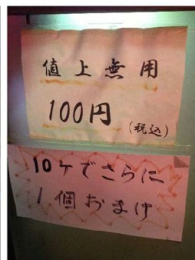 値上無用
100円
(税込)
10ケでさらに
1個おまけ